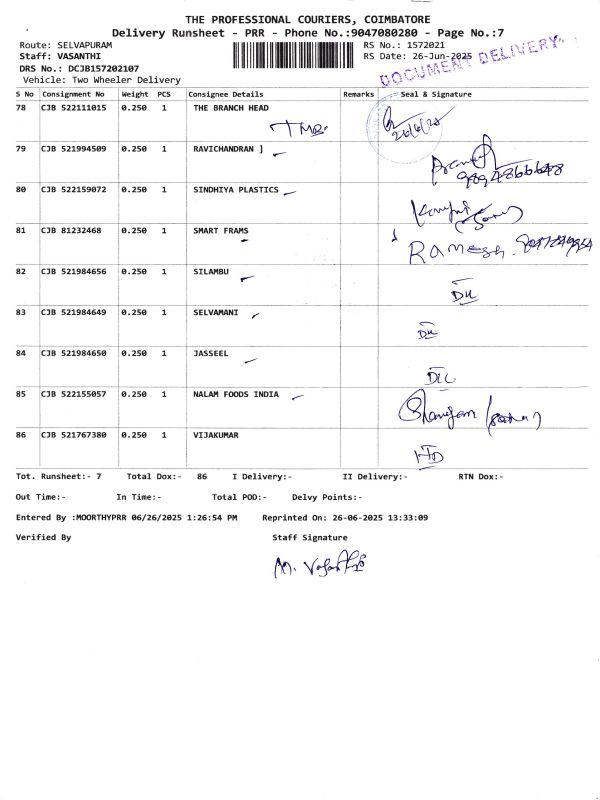 THE PROFESSIONAL COURIERS, COIMBATORE
Delivery Runsheet - PRR - Phone No.:9047080280 - Page No.:7
Route: SELVAPURAM RS No.: 1572021
Staff: VASANTHI RS Date: 26-Jun-2025
DOCUMENT DELIVERY
DRS No.: DCJB157202107
Vehicle: Two Wheeler Delivery
S No Consignment No Weight PCS Consignee Details Remarks Seal & Signature
78 CJB 522111015 0.250 1 THE BRANCH HEAD
26/6/25
79 CJB 521994509 0.250 1 RAVICHANDRAN ]
80 CJB 522159072 0.250 1 SINDHIYA PLASTICS
81 CJB 81232468 0.250 1 SMART FRAMS
Ramesh.
82 CJB 521984656 0.250 1 SILAMBU
83 CJB 521984649 0.250 1 SELVAMANI
84 CJB 521984650 0.250 1 JASSEEL
85 CJB 522155057 0.250 1 NALAM FOODS INDIA
86 CJB 521767380 0.250 1 VIJAKUMAR
Tot. Runsheet:- 7 Total Dox:- 86 I Delivery:- II Delivery:- RTN Dox:-
Out Time:- In Time:- Total POD:- Delvy Points:-
Entered By :MOORTHYPRR 06/26/2025 1:26:54 PM Reprinted On: 26-06-2025 13:33:09
Verified By Staff Signature